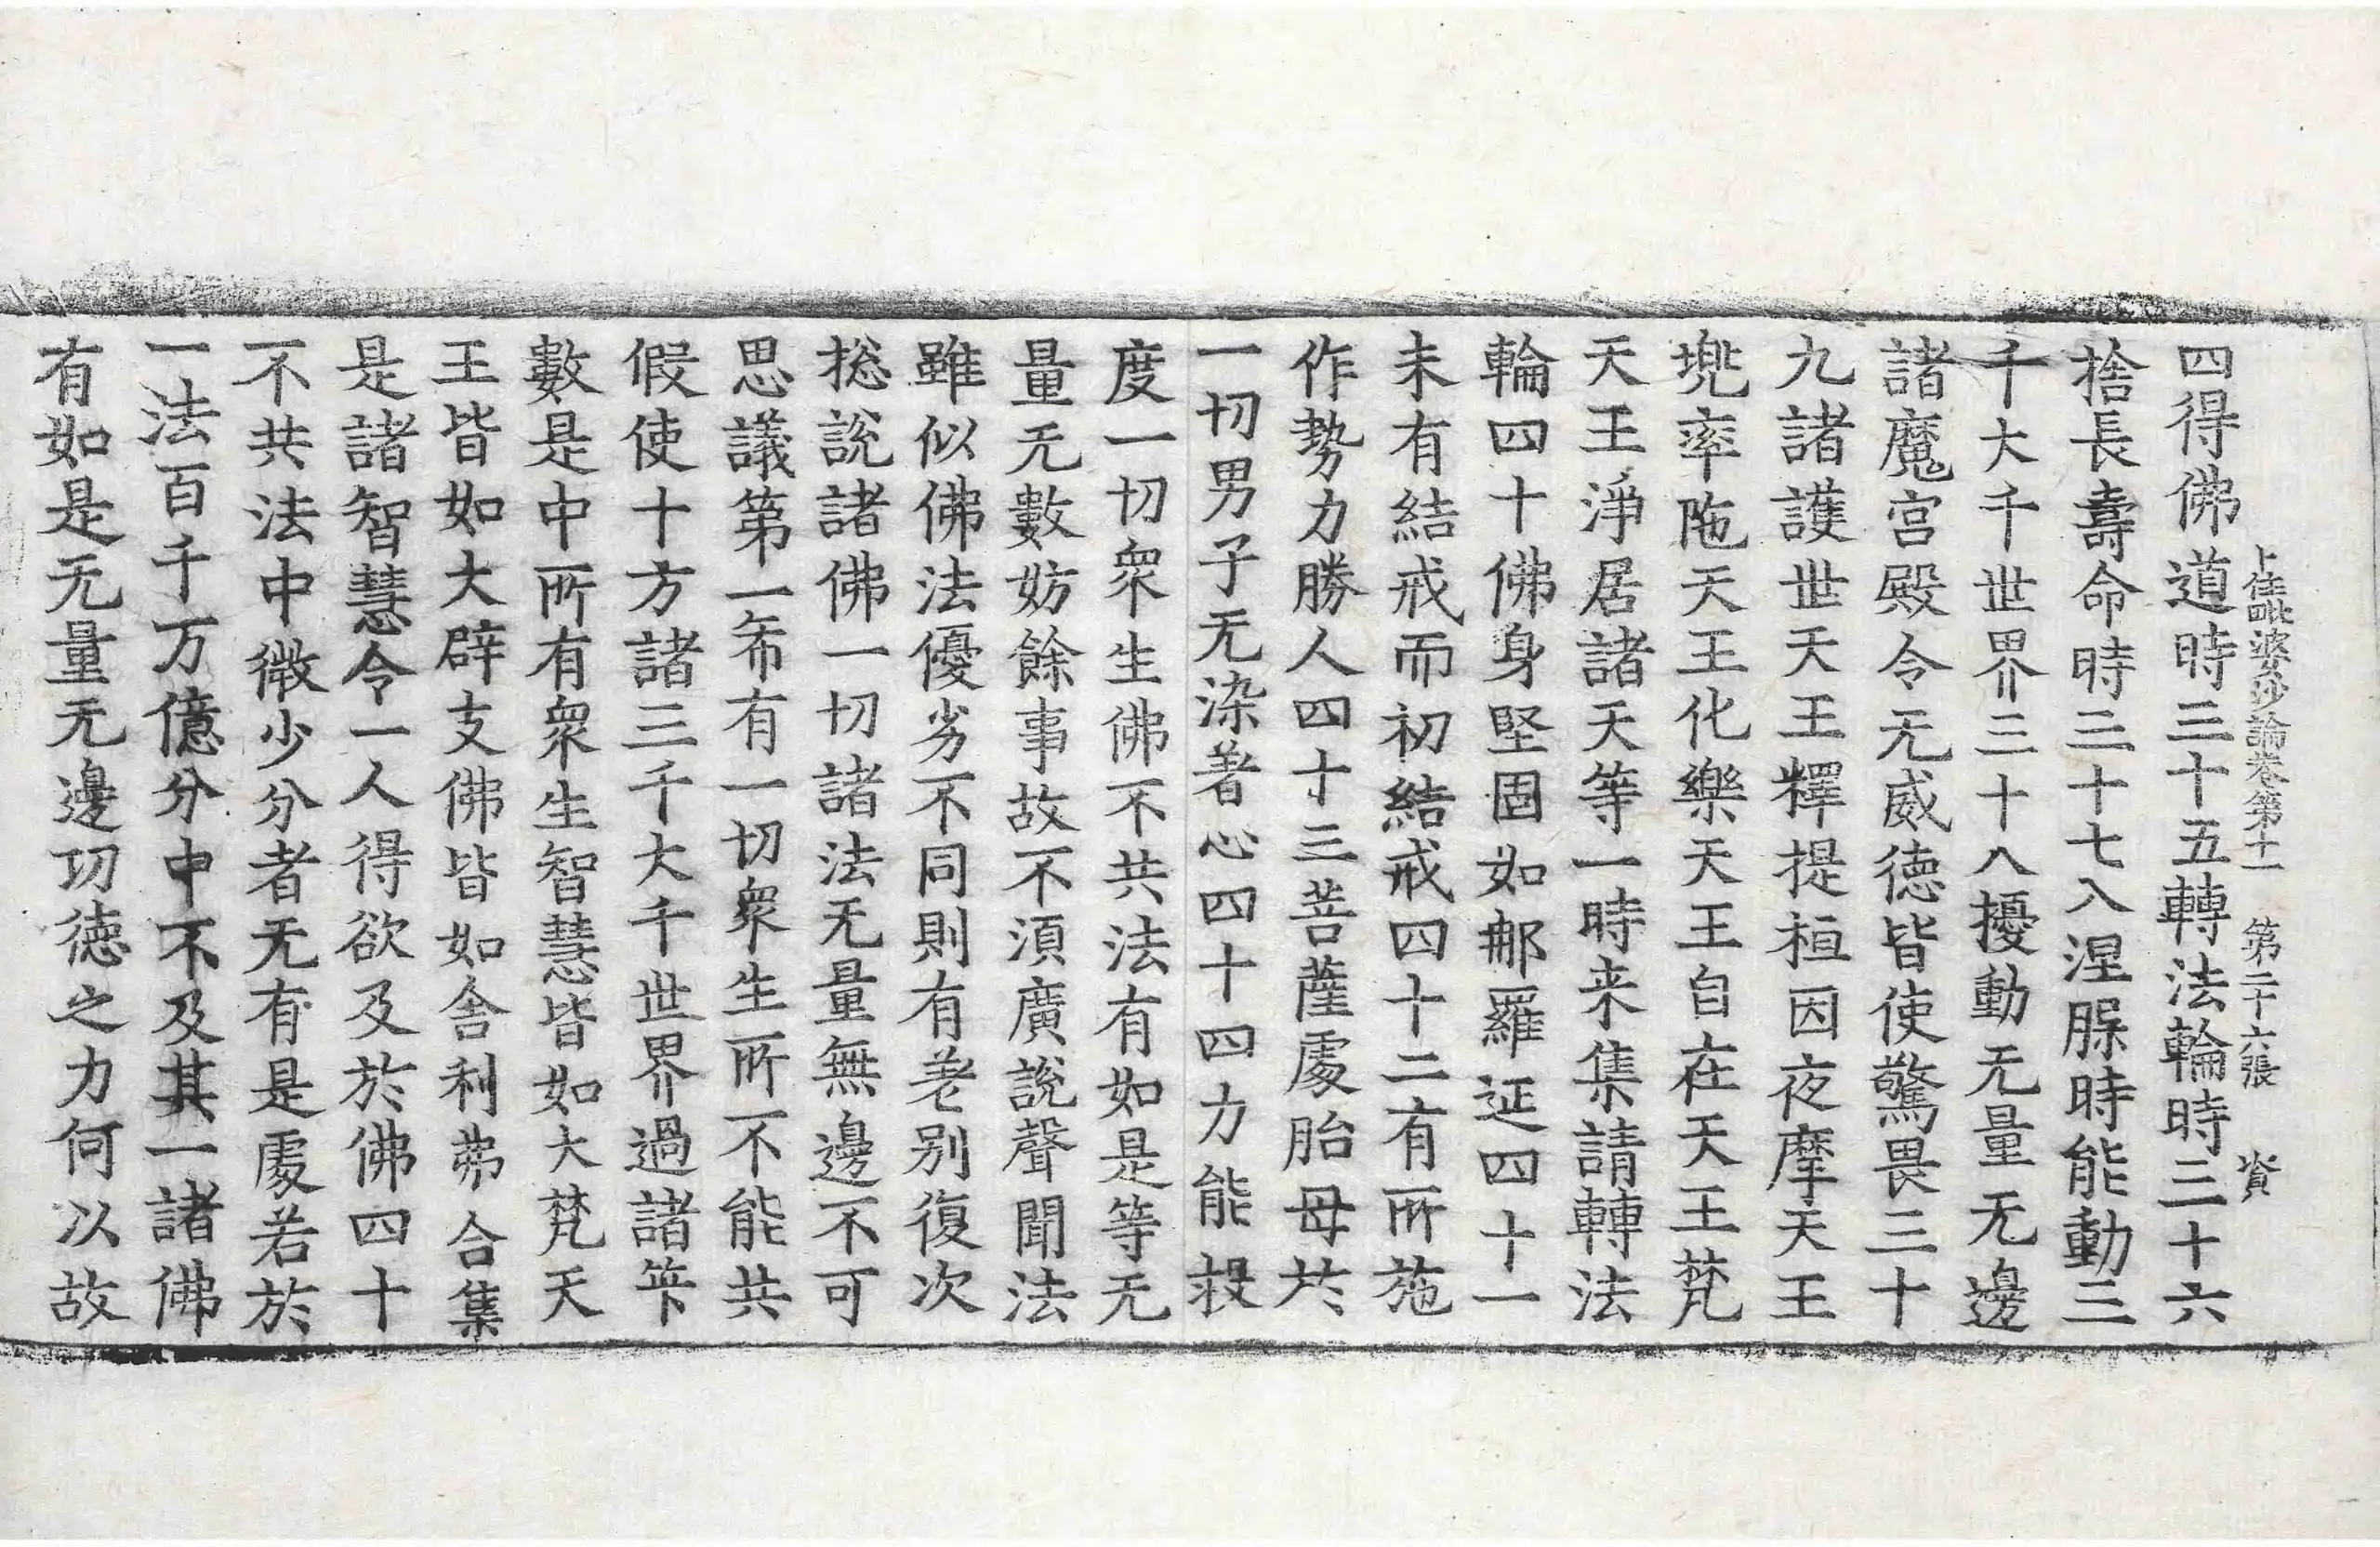 十住毗婆沙論卷第十一　第二十六張　資
四得佛道時三十五轉法輪時三十六
捨長壽命時三十七入涅脲時能動三
千大千世界三十八擾動无量无邊
諸魔宮殿令无威德皆使驚畏三十
九諸護世天王釋提桓因夜摩天王
兠率陁天王化樂天王自在天王梵
天王淨居諸天等一時来集請轉法
輪四十佛身堅固如那羅延四十一
未有結戒而初結戒四十二有所施
作勢力勝人四十三菩薩處胎母於
一切男子无染著心四十四力能救
度一切衆生佛不共法有如是等无
量无數妨餘事故不湏廣說聲聞法
雖似佛法優劣不同則有差别復次
捴說諸佛一切諸法无量無邊不可
思議第一希有一切衆生所不能共
假使十方諸三千大千世界過諸筭
數是中所有衆生智慧皆如大梵天
王皆如大辟支佛皆如舍利弗合集
是諸智慧令一人得欲及於佛四十
不共法中微少分者无有是處若於
一法百千万億分中不及其一諸佛
有如是无量无邊功德之力何以故